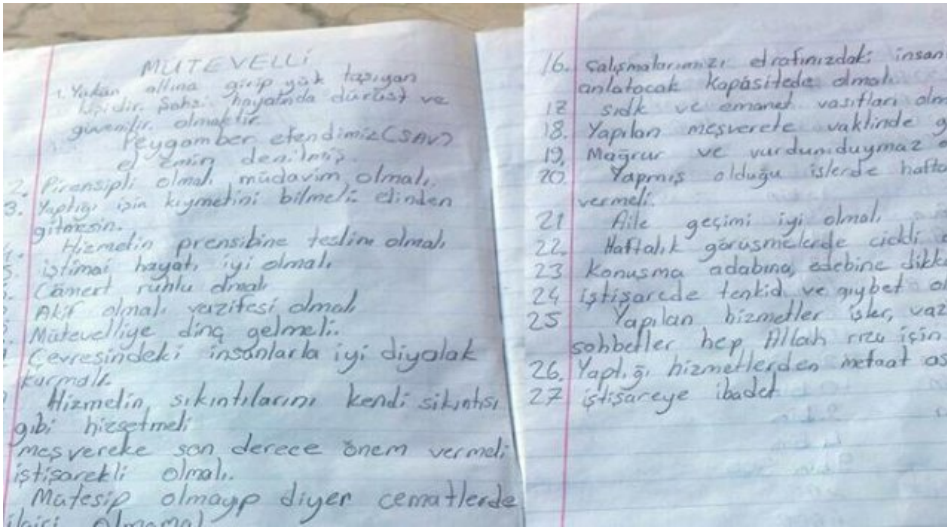 MÜTEVELLİ
1. Yükün altına girip yük taşıyan
kişidir. Şahsi hayatında dürüst ve
güvenilir olmaktır.
Peygamber efendimiz (SAV)
el Emin denilmiş.
2. Pirensipli olmalı müdavim olmalı.
3. Yaptığı işin kıymetini bilmeli elinden
gitmesin.
Hizmetin prensibine teslim olmalı
içtimai hayatı iyi olmalı
Cömert ruhlu olmalı
Aktif olmalı vazifesi olmalı
Mütevelliye dinç gelmeli.
Çevresindeki insanlarla iyi diyalak
kurmalı.
Hizmetin sıkıntılarını kendi sıkıntısı
gibi hissetmeli
meşvereke son derece önem vermeli
istişarekli olmalı.
Matesip olmayıp diyer cematlerde
16. çalışmalarımızı etrafınızdaki insan
anlatacak kapasitede olmalı
17 sıdk ve emanet vasıfları
18. Yapılan meşverete vaktinde
19. Mağrur ve vurdumduymaz
20. Yapmış olduğu işlerde
vermeli.
21 Aile geçimi iyi olmalı
22. Haftalık görüşmelerde ciddi
23 Konuşma adabına, edebine
24 istişarede tenkid ve gıybet
25 Yapılan hizmetler işler,
sohbetler hep Allah rızı için
26. Yaptığı hizmetlerden metaat
27 iştişareye ibadet